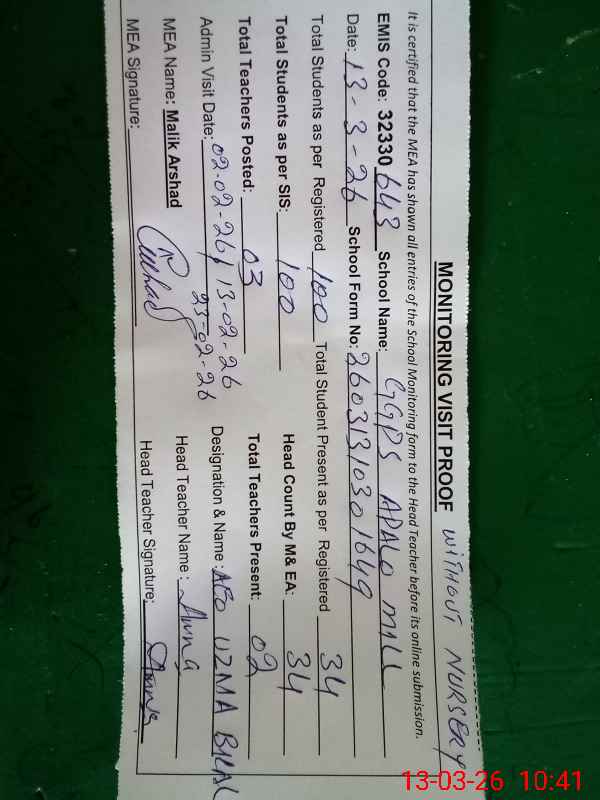 MONITORING VISIT PROOF WITHOUT NURSERY
It is certified that the MEA has shown all entries of the School Monitoring form to the Head Teacher before its online submission.
EMIS Code: 32330643 School Name: GGPS APALO MILL
Date: 13-3-26 School Form No: 26031310301649
Total Students as per Registered 100 Total Student Present as per Registered 34
Total Students as per SIS: 100 Head Count By M& EA: 34
Total Teachers Posted: 03 Total Teachers Present: 02
Admin Visit Date: 02-02-26, 13-02-26 Designation & Name: AEO UZMA BILAL
23-02-26
MEA Name: Malik Arshad Head Teacher Name:
MEA Signature: Head Teacher Signature:
13-03-26 10:41